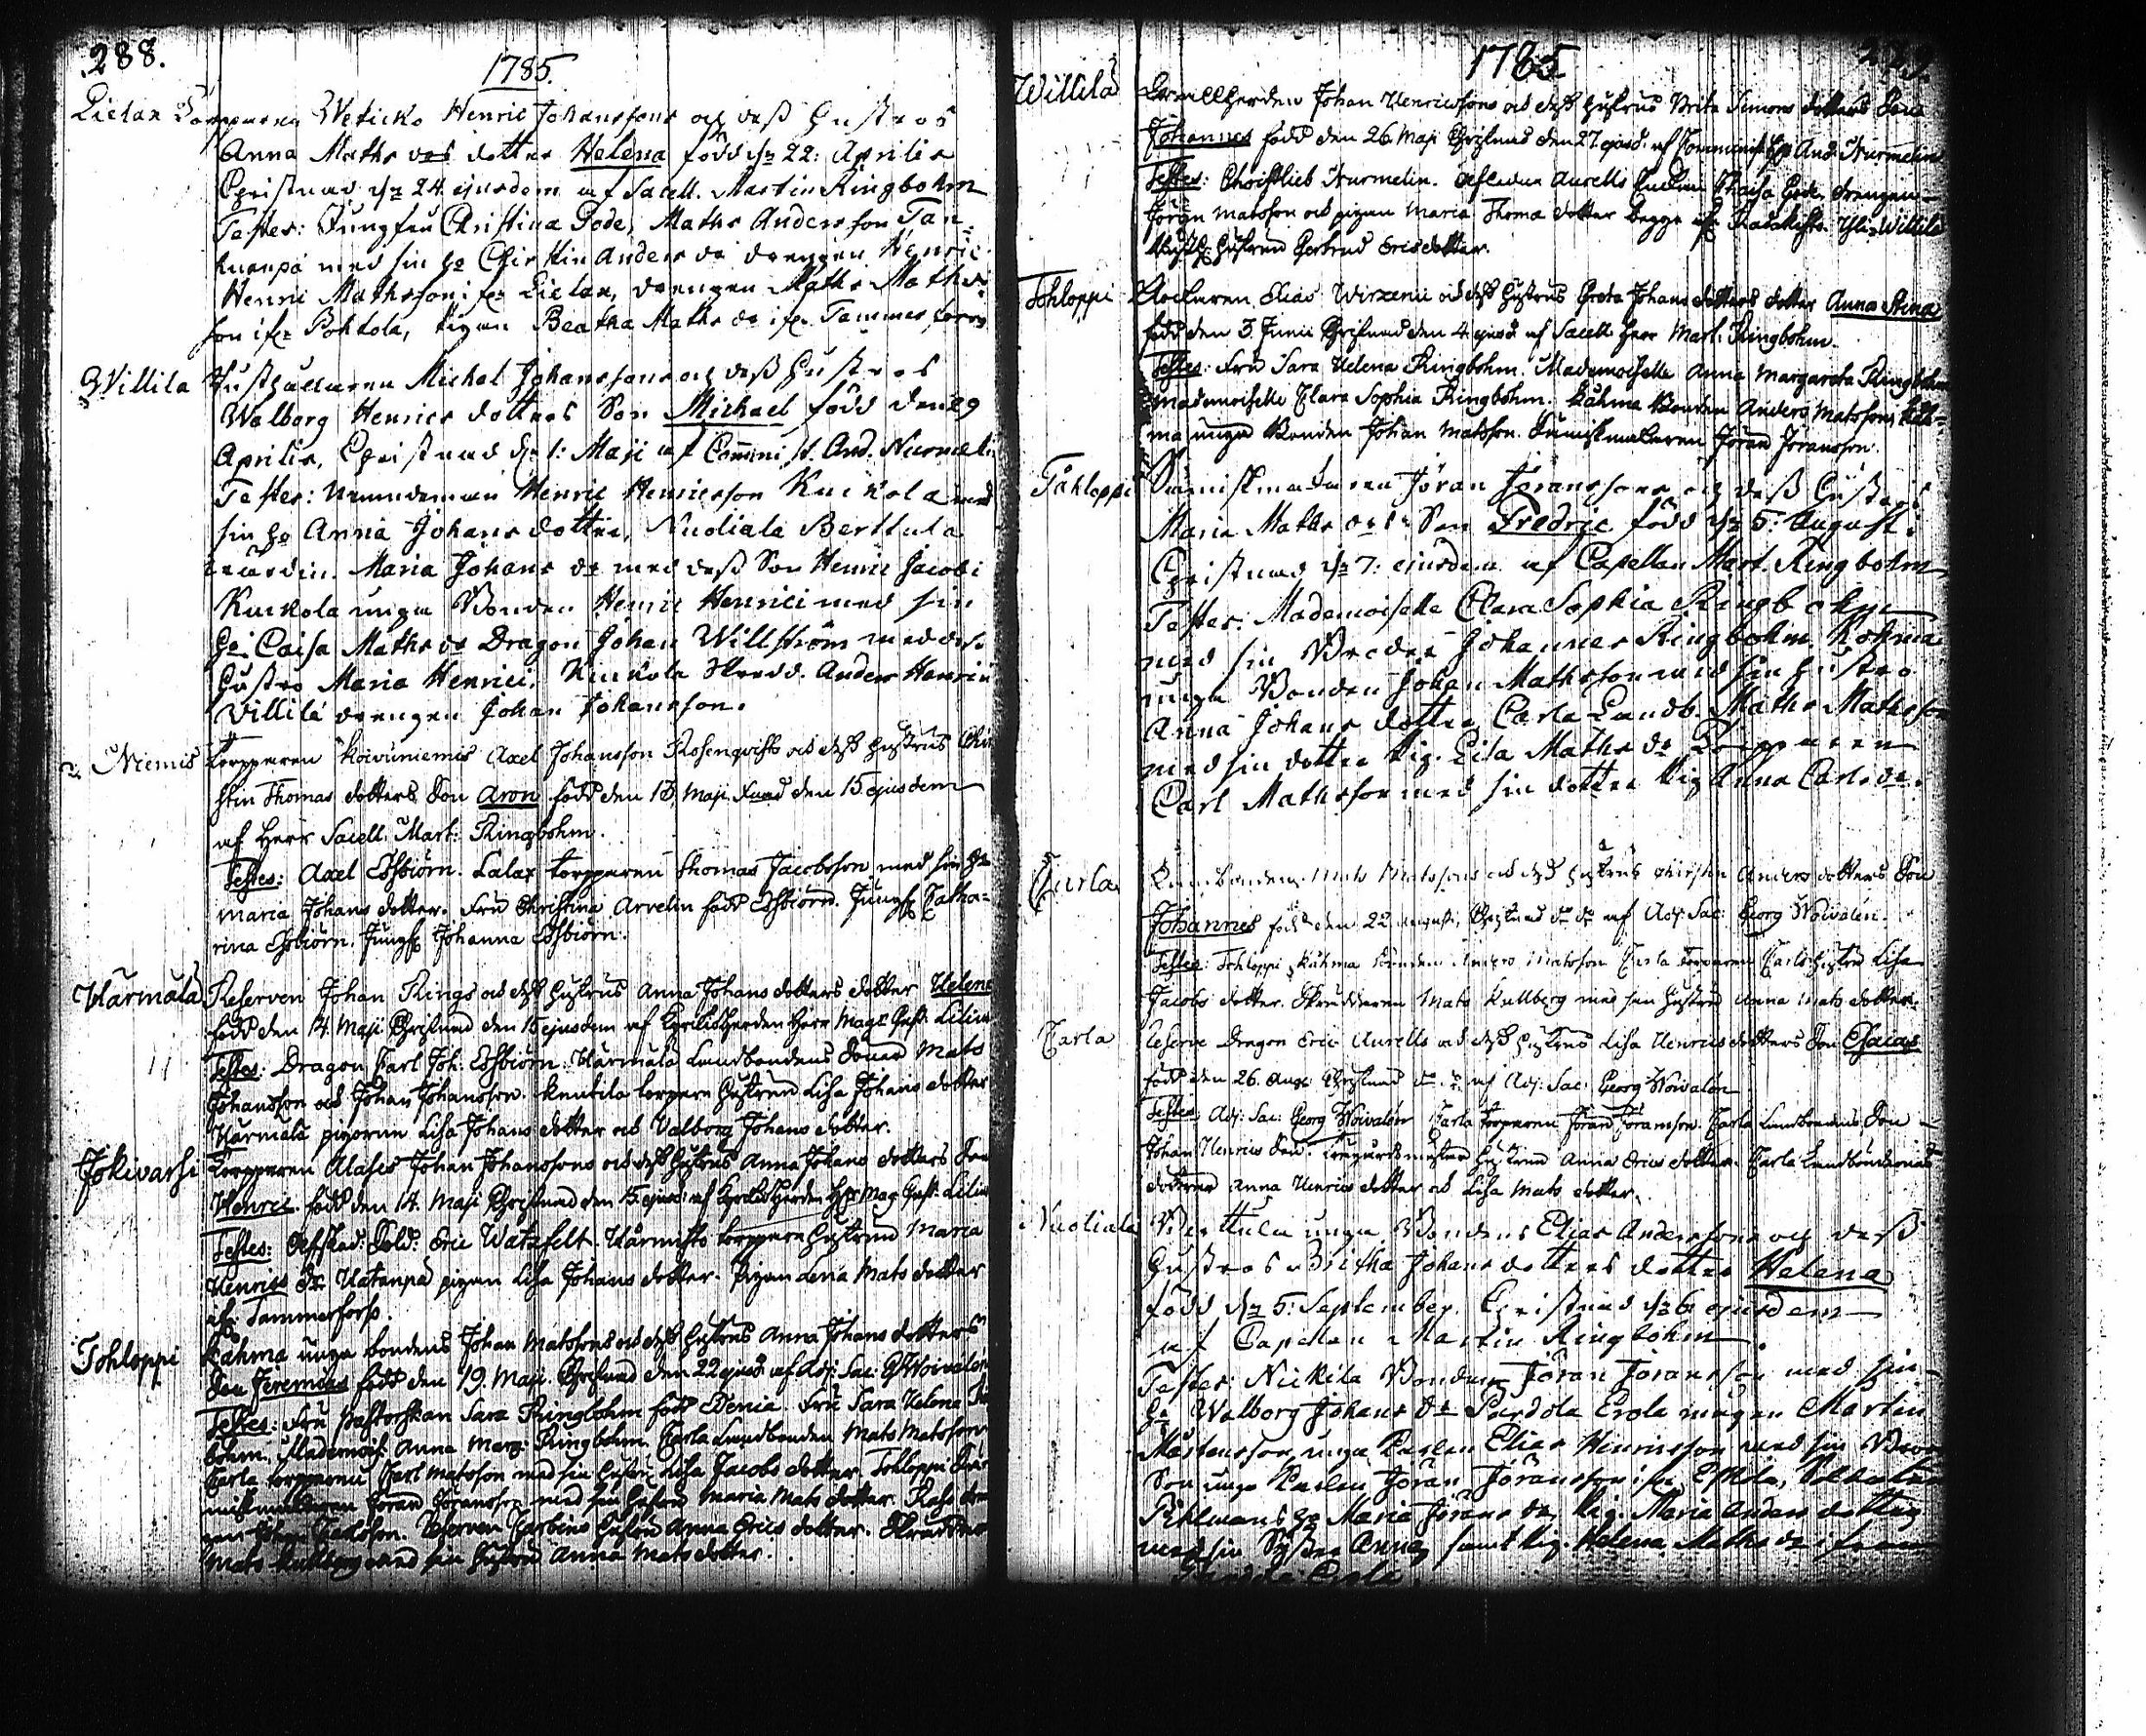 288.
1785.
Lielax Torpparen Weticko Henric Johanssons och dess Hustrus
Anna Maths dotter Helena född dn 22: Aprilis
Christnad dn 24 ejusdem af Sacell. Martin Ringbohm
Testes: Jungfru Christina Gode, Maths Andersson Tan-
med sin ho Christin Anders dr drengen Henric
Henric Mathsson ifr Lielax, drengen Maths Maths
son ifr Pohtola, Pigan Beatha Maths dr ifr Tammerfors
Willila Michel Johanssons och dess Hustrus
Walborg Henrics dotters Son Michael född den 29
Aprilis, Christnad dn 1: Maji af Commini. H. And. Nurmeli
Testes: Nemndeman Henric Henricsson Kuckola med
sin ho Anna Johans dotter, Nuoliala Berttula
Maria Johans dr med dess Son Henric Jacobi
Kuckola unga Bonden Henric Henrici med sin
Ho: Caisa Maths dr Dragon Johan Willström med dess
Hustro Maria Henrici. Kuckola Skredd. Anders Henrici
Villilä drengen Johan Johansson.
Niemis Torpparen Koivuniemis Axel Johansson Rosenqvists och dess hustrus Chri
stin Thomas dotters Son Aron född den 13 Maji den 15 ejusdem
af Herr Sacell. Mart: Ringbohm.
Testes: Axel Essbiörn. Lalax torpparen Thomas Jacobsson med sin Ho
Maria Johans dotter. Fru Christina Arvelin född Essbiörn. Jungfr Catha-
rina Essbiörn. Jungfr Johanna Essbiörn.
Härmälä Reserven Johan Rings och dess hustrus Anna Johans dotters dotter Helena
född den 14. Maji Christnad den 15 ejusdem af Kyrckoherden Herr Mag: Gust: Lilius
Testes: Dragon Carl Joh: Essbiörn. Härmälä Landbondens Söner Mats
Johansson och Johan Johansson. torppare hustrun Lisa Johans dotter
Härmälä pigorna Lisa Johans dotter och Valborg Johans dotter.
Jokivarsi Torpparen Alases Johan Johanssons och dess hustrus Anna Johans dotters Son
Henric. född den 14. Maji Christnad den 15. ejusd: af Kyrckoherden Hr Mag: Gust: Lilius
Testes: Afsked: Sold: Eric Watzfelt. torppare hustrun Maria
Henrics dr Hatanpä pigan Lisa Johans dotter. Pigan Lena Mats dotter
ifr Tammerforss.
Tohloppi Kähma unga bondens Johan Matssons och dess hustrus Anna Johans dotters
Son Jeremias född den 19. Maji. Christnad den 22 ejusd: af Adj: Sac: G Woivalén
Testes: Fru Pastorskan Sara Ringbohm född Denia. Fru Sara Helena
bohm. Mademois: Anna Marg: Ringbohm. Carla Landbonden Mats Matsson
Carla torpparen Carl Matsson med sin hustru Lisa Jacobs dotter. Tohloppi
Jöran Jöransson med sin hustru Maria Mats dotter.
Reserven hustru Anna Erics dotter. Skreddaren
Mats Kullberg med sin hustru Anna Mats dotter.
1785
289.
Willilä Johan Henricssons och dess hustrus Brita Simons dotters Son
Johannes född den 26. Maji Christnad den 27. ejusd: af Commin: Hr And: Nurmelin
Testes: Christlieb Nurmelin. Aurells drengen
Jöran Matsson och pigan Maria Thomæ dotter begge ifr Yli-Willilä
hustrun Gertrud Ericsdotter.
Tohloppi Klockaren Elias Wirzenii och dess hustrus Greta Johans dotters dotter Anna Stina
född den 3. Junii Christnad den 4. ejusd: af Sacell: Herr Mart: Ringbohm.
Testes: Fru Sara Helena Ringbohm. Mademoiselle Anna Margareta Ringbohm
Mademoiselle Clara Sophia Ringbohm. Kähma Bonden Anders Matsson, Käh-
ma unga Bonden Johan Matsson. Jöran Jöransson.
Tåhloppi Jöran Jöranssons och dess Hustrus
Maria Maths Son Fredric född dn 5: August:
Christnad dn 7: ejusdem af Capellan Mart. Ringbohm
Testes: Mademoiselle Clara Sophia Ringbohm
med sin Broder Johannes Ringbohm. Kohma
unga Bonden Johan Mathsson med sin hustro
Anna Johans dotter Carla Landb. Maths Mathsson
med sin dotter Pig. Lisa Maths dr Torpparen
Carl Mathsson med sin dotter Pig Anna Carls dr.
Carla Landbonden Mats Matssons och dess hustrus Christin Anders dotters Son
Johannes född den 22 august; Christnad dn do af Adj: Sac: Georg Woivalén.
Testes: Tohloppi Kähma bonden Anders Matsson Carla torpparen Carls hustru Lisa
Jacobs dotter. Skreddaren Mats Kullberg med sin hustru Anna Mats dotter.
Carla Reserve Dragon Eric Aurells och dess hustrus Lisa Henrics dotters Son Esaias
född den 26. Aug: Christnad af Adj: Sac: Georg Woivalén
Testes: Adj: Sac: Georg Woivalén Carla torpparen Jöran Jöransson. Carla Landbondens Son
Johan Henrics Son. hustrun Anna Erics dotter. Carla Landböndernas
döttrar Anna Henrics dotter och Lisa Mats dotter.
Nuoliala Berttula unga Bondens Elias Anderssons och dess
Hustrus Britha Johans dotters dotter Helena
född dn 5: September Christnad dn 6 ejusdem
af Capellan Martin Ringbohm
Testes: Nickila Bonden Jöran Jöransson med sin
ho Walborg Johans dr Pardola Erola Martin
Mårtensson, unga Karlen Elias Henricsson med sin Bror
Son unga Karlen Jöran Jöransson ifr Soldaten
Pihlmans ho Maria Jörans dr, Pig. Maria Anders dotter
med sin Syster Anna, samt Pig. Helena Maths dr ifrån
Erola.